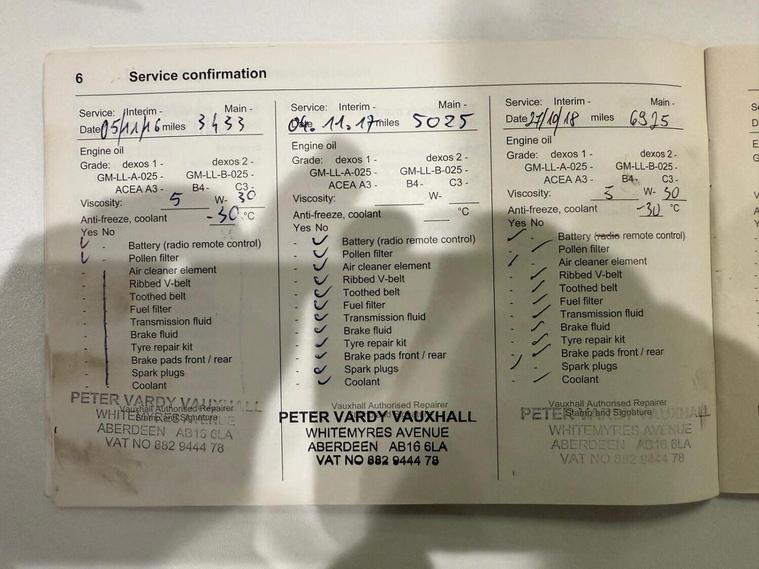 6 Service confirmation
Service: Interim - Main -
Date 05/11/16 miles 3433
Engine oil
Grade: dexos 1 - dexos 2 -
GM-LL-A-025 - GM-LL-B-025 -
ACEA A3 - B4 - C3 -
Viscosity: 5 W- 30
Anti-freeze, coolant -30 °C
Yes No
Battery (radio remote control)
Pollen filter
Air cleaner element
Ribbed V-belt
Toothed belt
Fuel filter
Transmission fluid
Brake fluid
Tyre repair kit
Brake pads front / rear
Spark plugs
Coolant
Vauxhall Authorised Repairer
Stamp and Signature
PETER VARDY VAUXHALL
WHITEMYRES AVENUE
ABERDEEN AB16 6LA
VAT NO 882 9444 78
Service: Interim - Main -
Date 04.11.17 miles 5025
Engine oil
Grade: dexos 1 - dexos 2 -
GM-LL-A-025 - GM-LL-B-025 -
ACEA A3 - B4- C3 -
Viscosity: W-
Anti-freeze, coolant °C
Yes No
Battery (radio remote control)
Pollen filter
Air cleaner element
Ribbed V-belt
Toothed belt
Fuel filter
Transmission fluid
Brake fluid
Tyre repair kit
Brake pads front / rear
Spark plugs
Coolant
Vauxhall Authorised Repairer
PETER VARDY VAUXHALL
WHITEMYRES AVENUE
ABERDEEN AB16 6LA
VAT NO 882 9444 78
Service: Interim - Main -
Date 27/10/18 miles 6925
Engine oil
Grade: dexos 1 - dexos 2 -
GM-LL-A-025 - GM-LL-B-025 -
ACEA A3 - B4- C3 -
Viscosity: 5 W- 30
Anti-freeze, coolant -30 °C
Yes No
Battery (radio remote control)
Pollen filter
Air cleaner element
Ribbed V-belt
Toothed belt
Fuel filter
Transmission fluid
Brake fluid
Tyre repair kit
Brake pads front / rear
Spark plugs
Coolant
Vauxhall Authorised Repairer
Stamp and Signature
PETER VARDY VAUXHALL
WHITEMYRES AVENUE
ABERDEEN AB16 6LA
VAT NO 882 9444 78